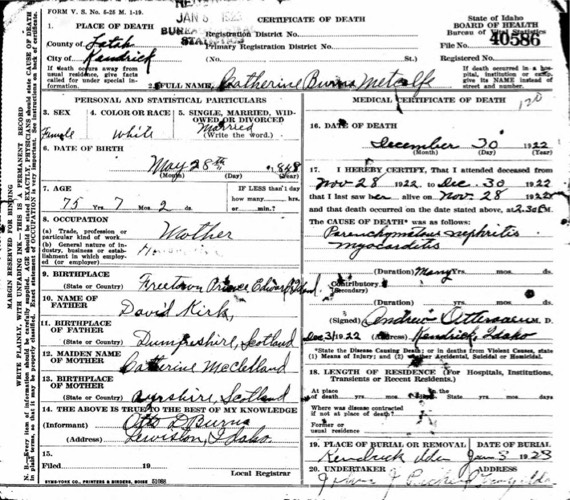 FORM V. S. No. 6-25 M. 1-19.
JAN 5 1923
BUREAU VITAL STATISTICS
CERTIFICATE OF DEATH
State of Idaho
BOARD OF HEALTH
Bureau of Vital Statistics
File No. 40586
1. PLACE OF DEATH
County of Latah
City of Kendrick
Registration District No.
Primary Registration District No.
Registered No.
(No. St.)
(If death occurs away from usual residence, give facts called for under special information.)
(If death occurred in a hospital, institution or camp, give its NAME instead of street and number.)
2. FULL NAME, Catherine Burns Metcalfe
PERSONAL AND STATISTICAL PARTICULARS
3. SEX
Female
4. COLOR OR RACE
White
5. SINGLE, MARRIED, WIDOWED OR DIVORCED
Married
(Write the word.)
6. DATE OF BIRTH
May 28th 1848
(Month) (Day) (Year)
7. AGE
75 Yrs. 7 Mos. 2 ds.
IF LESS than 1 day how many hrs. or min.
8. OCCUPATION
(a) Trade, profession or particular kind of work
Mother
(b) General nature of industry, business or establishment in which employed (or employer)
9. BIRTHPLACE
(State or Country)
Freetown Prince Edward Island
10. NAME OF FATHER
David Kirk,
11. BIRTHPLACE OF FATHER
(State or Country)
Dumfreshire, Scotland
12. MAIDEN NAME OF MOTHER
Catherine McClelland
13. BIRTHPLACE OF MOTHER
(State or Country)
Ayrshire, Scotland
14. THE ABOVE IS TRUE TO THE BEST OF MY KNOWLEDGE
(Informant) Otto D Burns
(Address) Lewiston, Idaho.
15.
Filed 19
Local Registrar
SYMS-YORK CO., PRINTERS & BINDERS, BOISE 51088
MEDICAL CERTIFICATE OF DEATH
16. DATE OF DEATH
December 30 1922
(Month) (Day) (Year)
17. I HEREBY CERTIFY, That I attended deceased from
Nov 28 1922 to Dec. 30 1922
that I last saw her alive on Nov 28
and that death occurred on the date stated above, at 2:30 P.M.
The CAUSE OF DEATH was as follows:
Parenchomatous nephritis
myocarditis
(Duration) Many yrs. mos. ds.
Contributory
(Secondary)
(Duration) yrs. mos. ds.
(Signed) Andrew M. D.
Dec 31 1922 (Address) Kendrick, Idaho
*State the Disease Causing Death; or in deaths from Violent Causes, state (1) Means of Injury; and (2) whether Accidental, Suicidal or Homicidal.
18. LENGTH OF RESIDENCE (For Hospitals, Institutions, Transients or Recent Residents.)
At place of death yrs. mos. ds. State yrs. mos. ds.
Where was disease contracted if not at place of death?
Former or usual residence
19. PLACE OF BURIAL OR REMOVAL
Kendrick Ida
DATE OF BURIAL
Jan 3 1923
20. UNDERTAKER
ADDRESS
MARGIN RESERVED FOR BINDING
WRITE PLAINLY, WITH UNFADING INK—THIS IS A PERMANENT RECORD